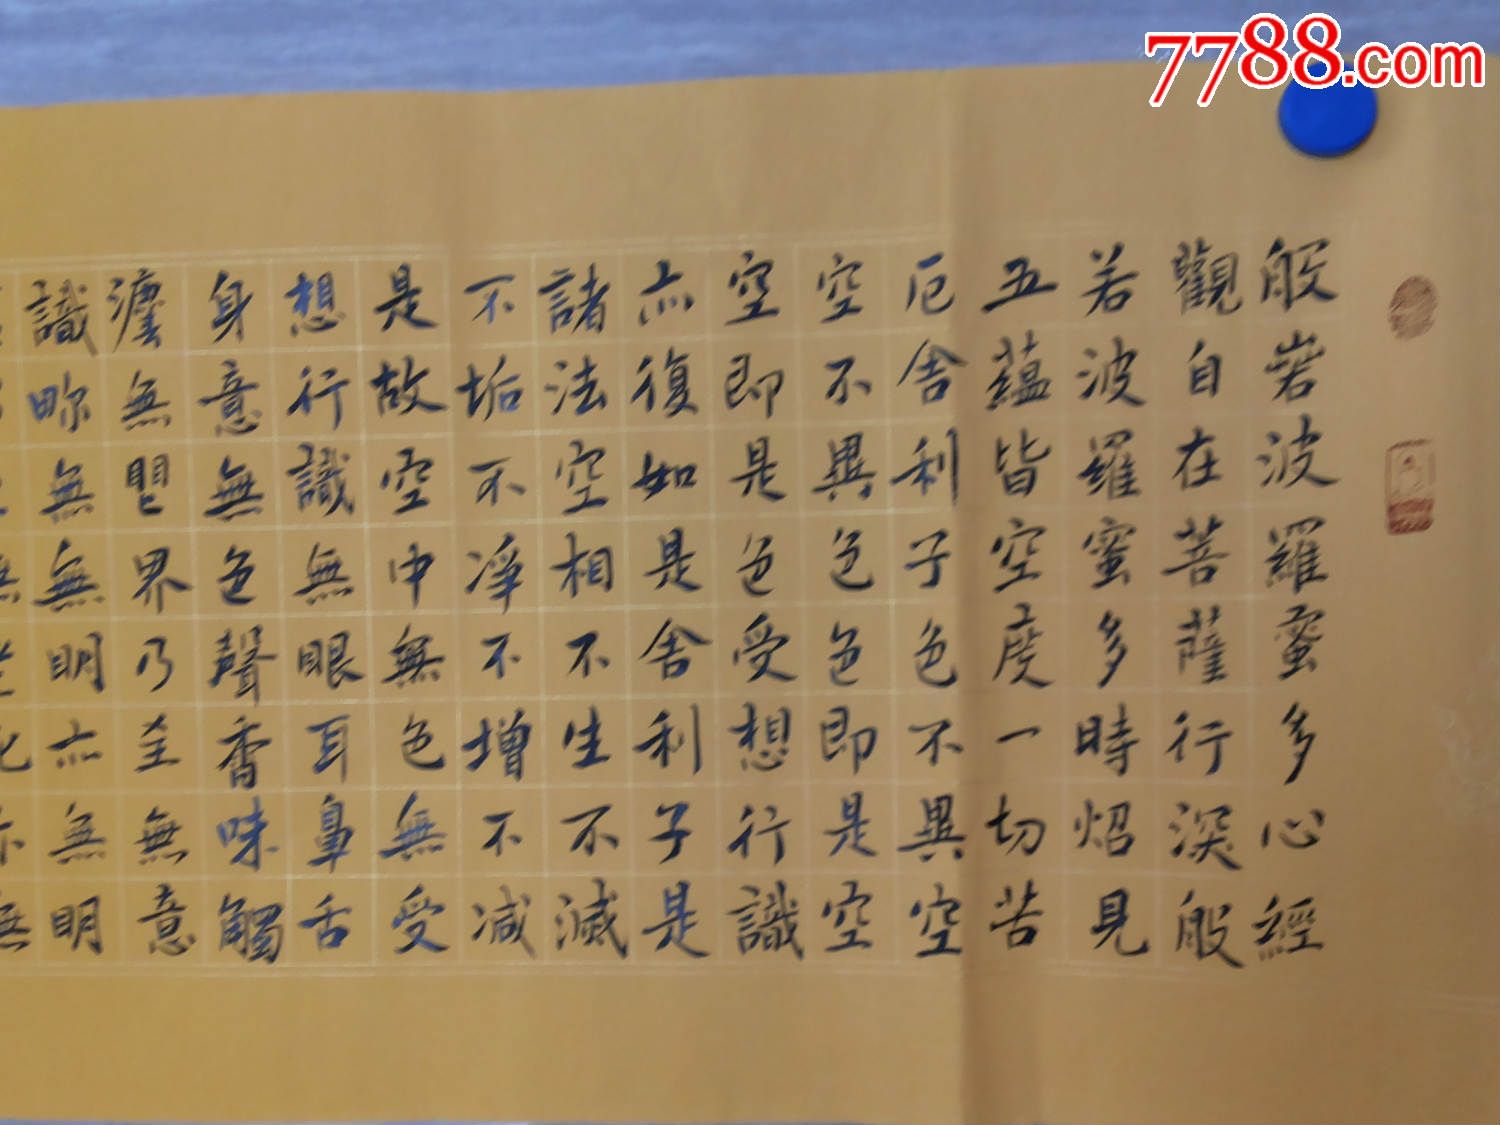 般若波羅蜜多心經
觀自在菩薩行深般
若波羅蜜多時炤見
五蘊皆空度一切苦
厄舍利子色不異空
空不異色色即是空
空即是色受想行識
亦復如是舍利子是
諸法空相不生不滅
不垢不淨不增不減
是故空中無色無受
想行識無眼耳鼻舌
身意無色聲香味觸
灋無界乃至無意
識畍無無明亦無明
7788.com